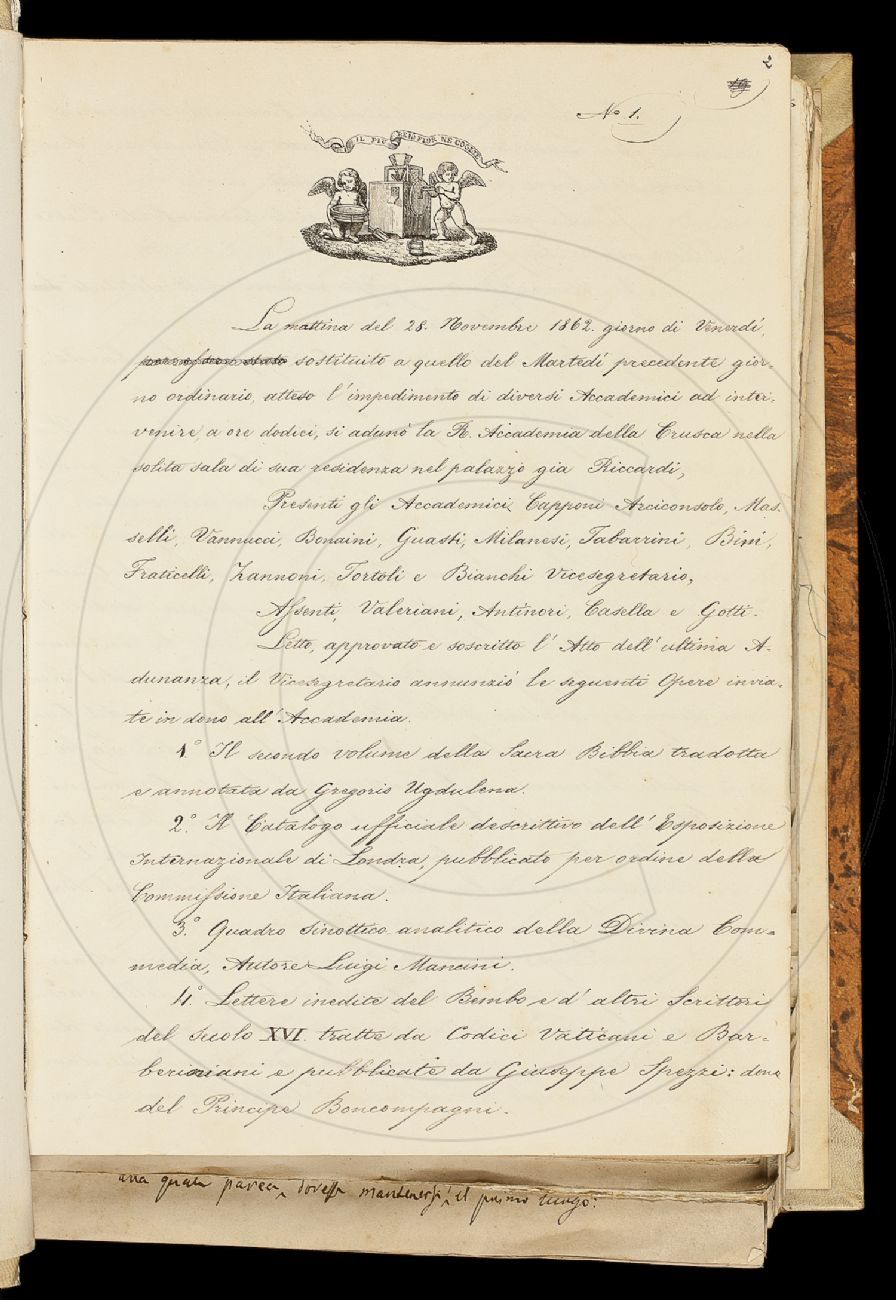 2
No 1.
IL PIÙ BEL FIOR NE COGLIE
La mattina del 28. Novembre 1862. giorno di Venerdí,
sostituito a quello del Martedí precedente gior-
no ordinario, atteso l'impedimento di diversi Accademici ad inter-
venire, a ore dodici, si adunò la R. Accademia della Crusca nella
solita sala di sua residenza nel palazzo già Riccardi,
Presenti gli Accademici, Capponi Arciconsolo, Mas-
selli, Vannucci, Bonaini, Guasti, Milanesi, Tabarrini, Bini,
Fraticelli, Zannoni, Tortoli e Bianchi Vicesegretario,
Assenti, Valeriani, Antinori, Casella e Gotti.
Letto, approvato e soscritto l'Atto dell'ultima A-
dunanza, il Vicesegretario annunziò le seguenti Opere invia-
te in dono all'Accademia.
1.° Il secondo volume della Sacra Bibbia tradotta
e annotata da Gregorio Ugdulena.
2.° Il Catalogo ufficiale descrittivo dell'Esposizione
Internazionale di Londra, pubblicato per ordine della
Commissione Italiana.
3.° Quadro sinottico analitico della Divina Com-
media, Autore Luigi Mancini.
4.° Lettere inedite del Bembo e d'altri Scrittori
del Secolo XVI. tratte da Codici Vaticani e Bar-
beriniani e pubblicate da Giuseppe Spezzi: dono
del Principe Boncompagni.
parea, dovesse mantenersi il primo luogo: